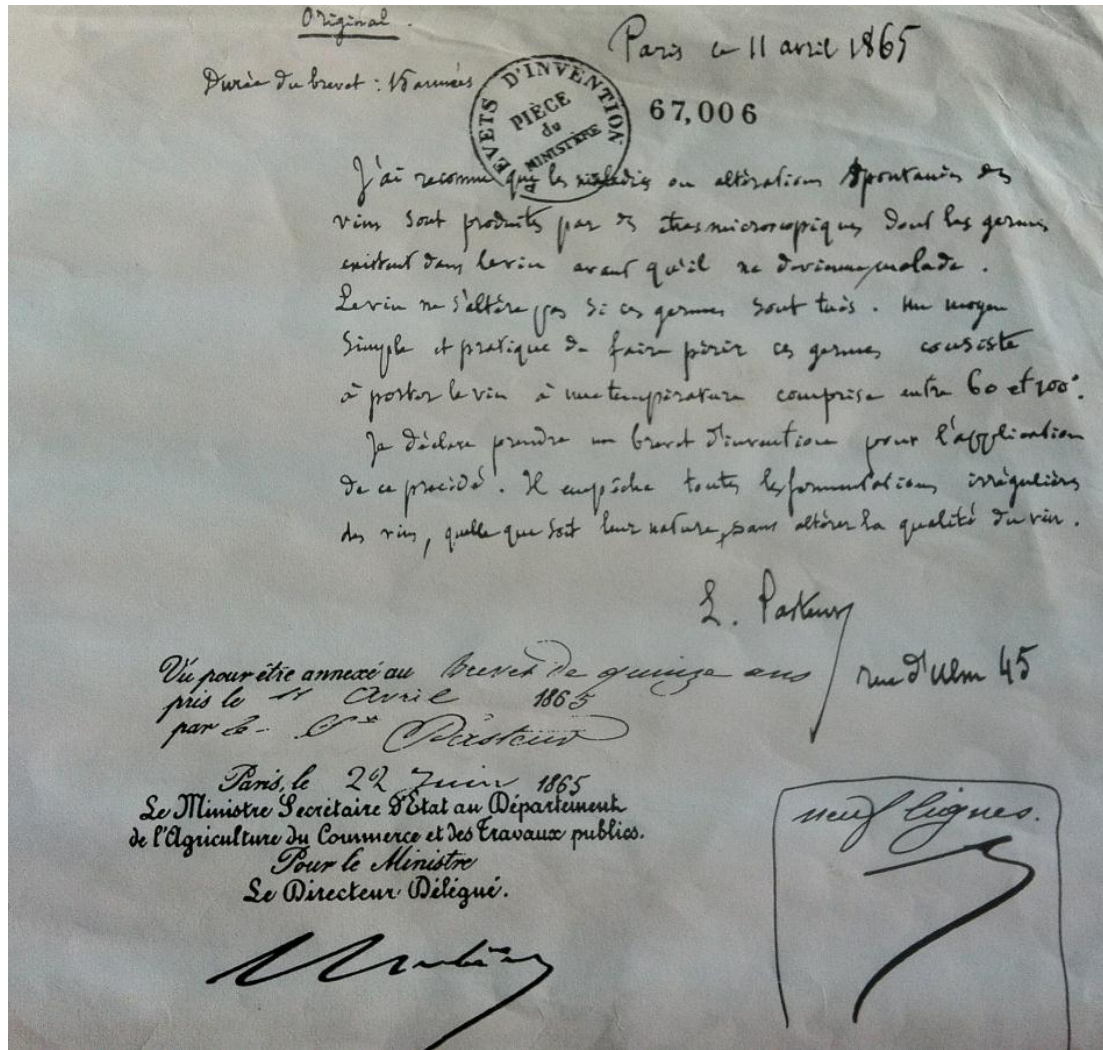 Original.
Paris ce 11 avril 1865
Durée du brevet : 15 années
BREVETS D'INVENTION
PIÈCE
du
MINISTÈRE
67,006
J'ai reconnu que les maladies ou altérations spontanées des
vins sont produites par des êtres microscopiques dont les germes
existent dans le vin avant qu'il ne devienne malade.
Le vin ne s'altère pas si ces germes sont tués. Un moyen
simple et pratique de faire périr ces germes consiste
à porter le vin à une température comprise entre 60 et 100°.
Je déclare prendre un brevet d'invention pour l'application
de ce procédé. Il empêche toutes les fermentations irrégulières
des vins, quelle que soit leur nature, sans altérer la qualité du vin.
L. Pasteur
rue d'Ulm 45
Vu pour être annexé au Brevet de quinze ans
pris le 11 Avril 1865
par le Sr Pasteur
Paris, le 22 Juin 1865
Le Ministre Secrétaire d'Etat au Département
de l'Agriculture du Commerce et des Travaux publics.
Pour le Ministre
Le Directeur Délégué.
neuf lignes.